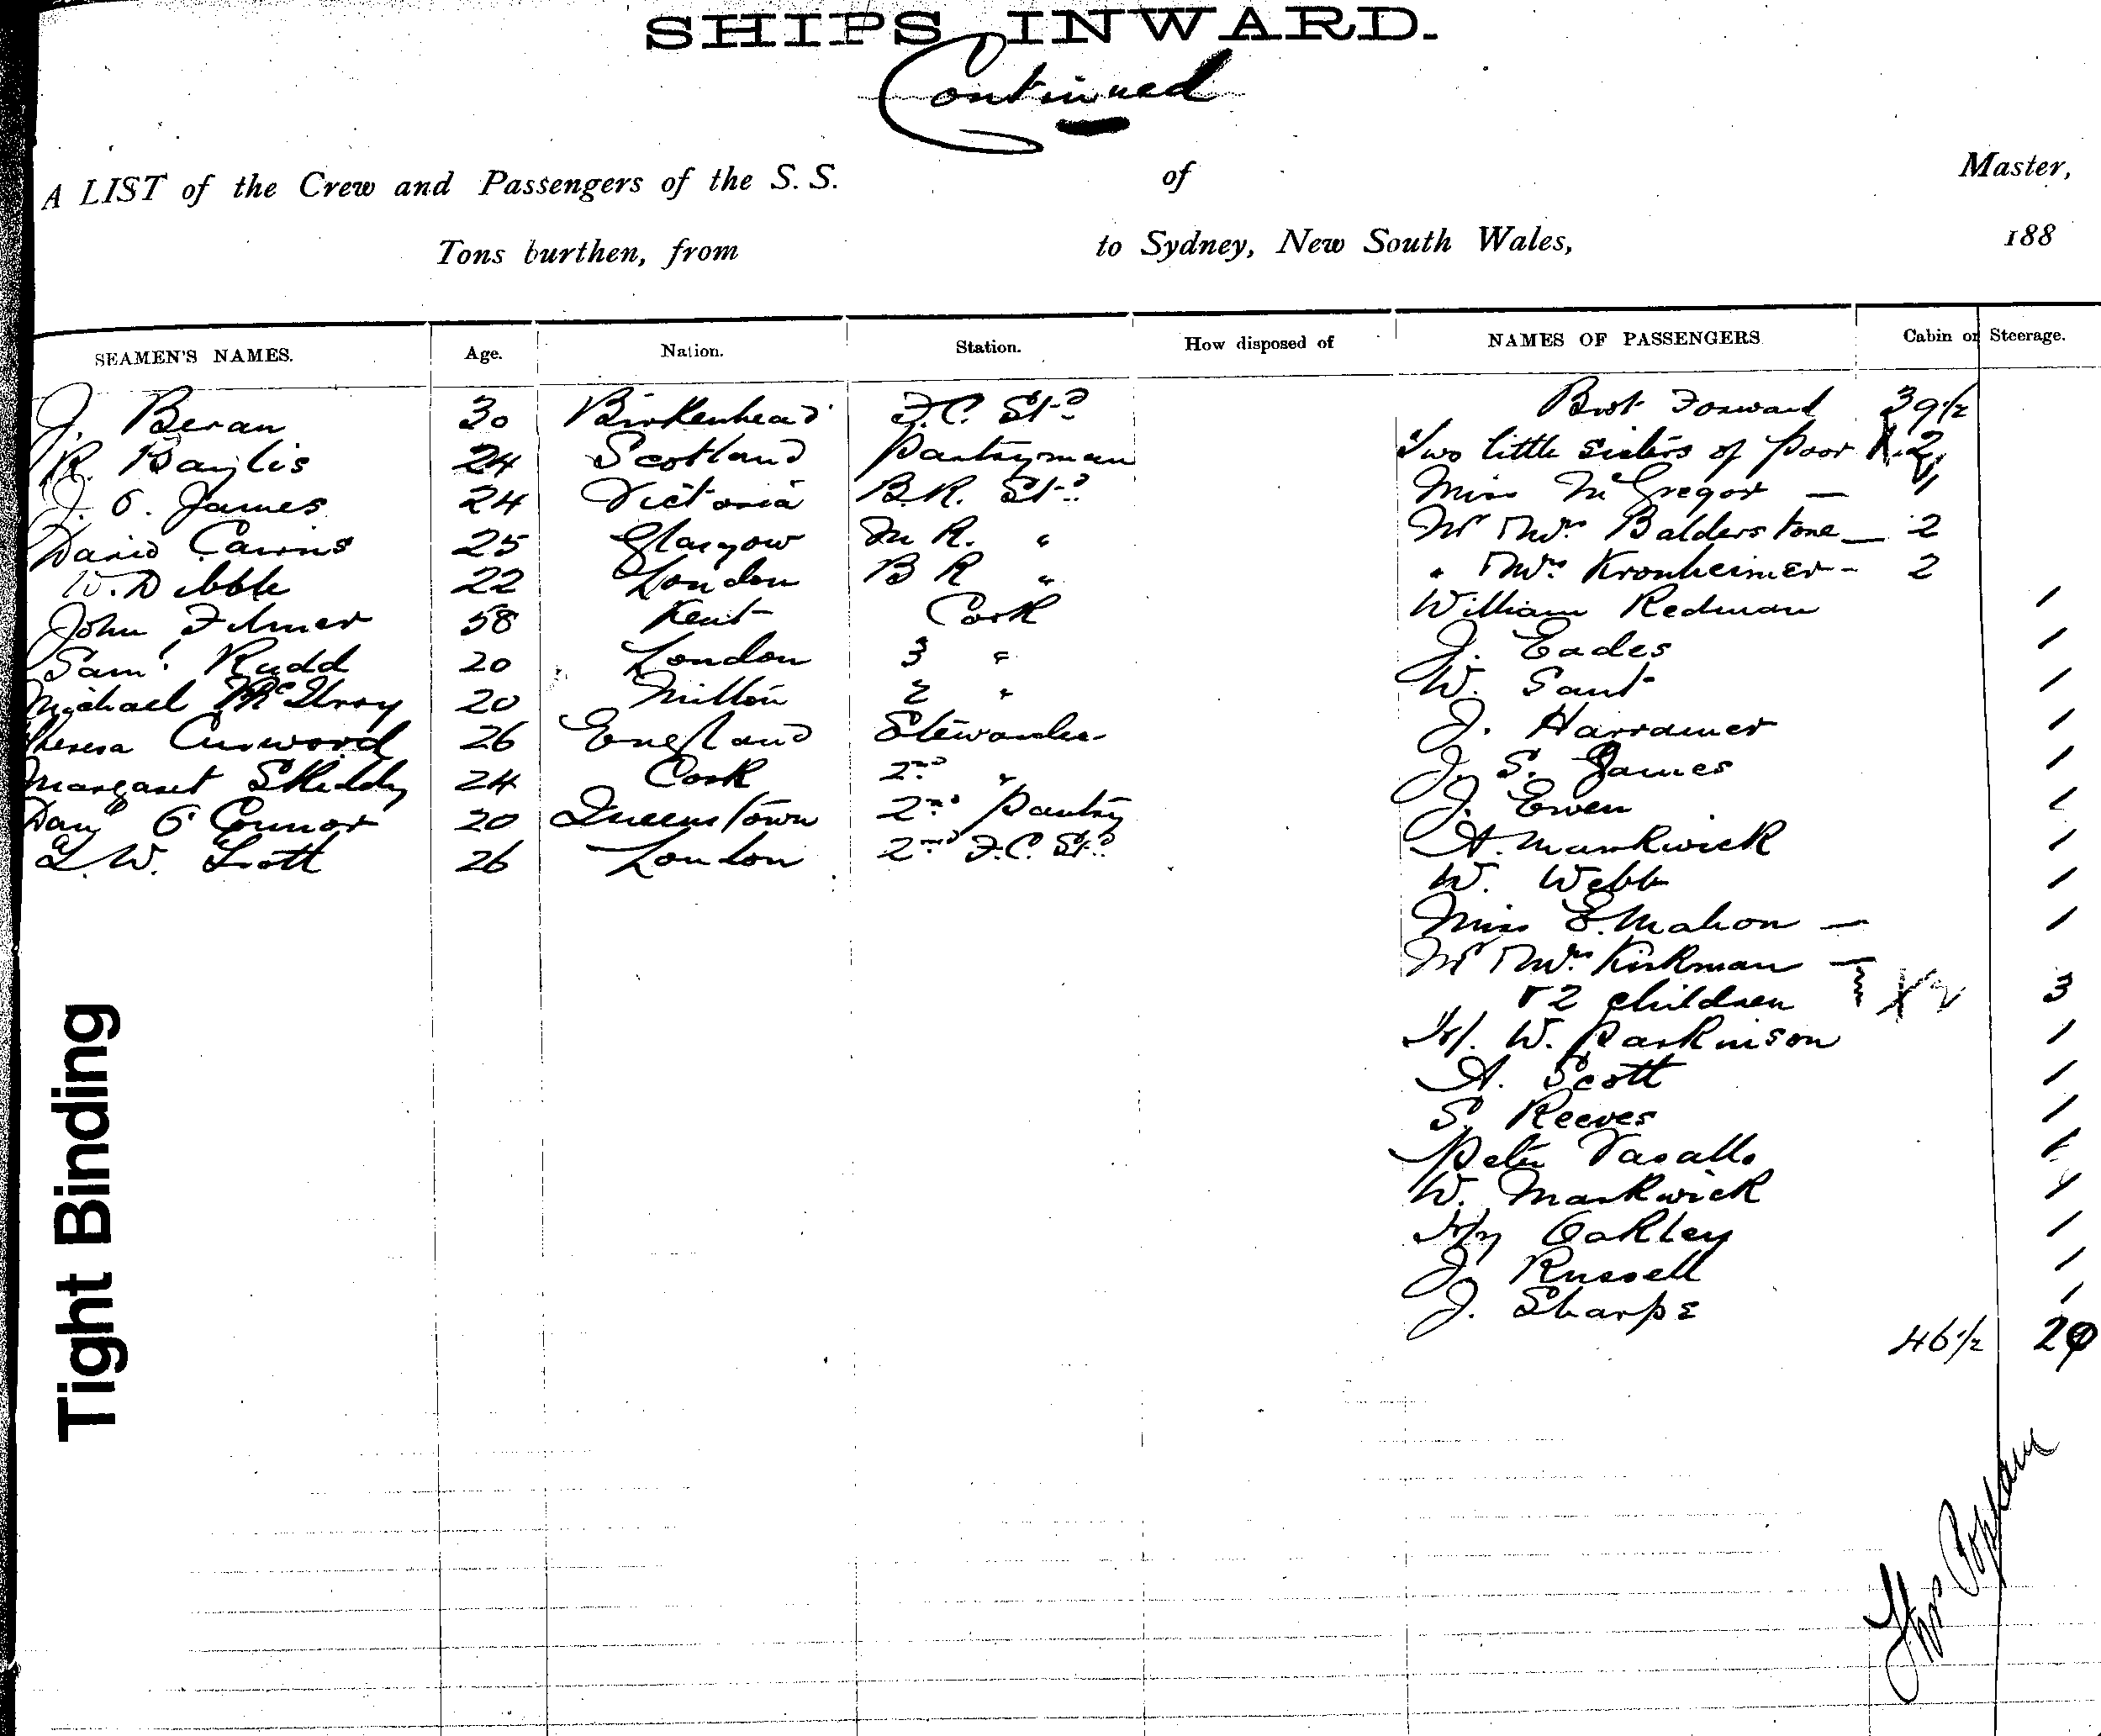 SHIPS INWARD.
Continued
A LIST of the Crew and Passengers of the S. S. of Master,
Tons burthen, from to Sydney, New South Wales, 188
SEAMEN'S NAMES. Age. Nation. Station. How disposed of NAMES OF PASSENGERS Cabin or Steerage.
Brot Forward 39 1/2
J. Beran 30 Birkenhead F.C. Std
R. Baylis 24 Scotland Pantryman Two little sisters of Poor 2
J. O. James 24 Victoria B.R. Std Miss McGregor — 1
David Cairns 25 Glasgow M R. " Mr & Mrs Balderstone — 2
W. Dibble 22 London B R " " & Mrs Kronheimer - 2
John Filmer 58 Kent Cook William Redman 1
Saml Rudd 20 London 3 " J. Eades 1
Michael McIlroy 20 Milton 2 " W. Sant 1
Theresa Curwood 26 England Stewardess J. Harramer 1
Margaret Skiddy 24 Cork 2nd " J. S. James 1
Danl O'Connor 20 Queenstown 2nd Pantry J. Ewen 1
L. W. Lott 26 London 2nd F.C. Std A. Markwick 1
W. Webb 1
Miss E. Mahon — 1
Mr & Mrs Kirkman —
& 2 children 3
W. Parkinson 1
A. Scott 1
S. Reeves 1
Peter Vasallo 1
W. Markwick 1
Hy Oakley 1
J. Russell 1
J. Sharpe 1
46 1/2 20
Tight Binding